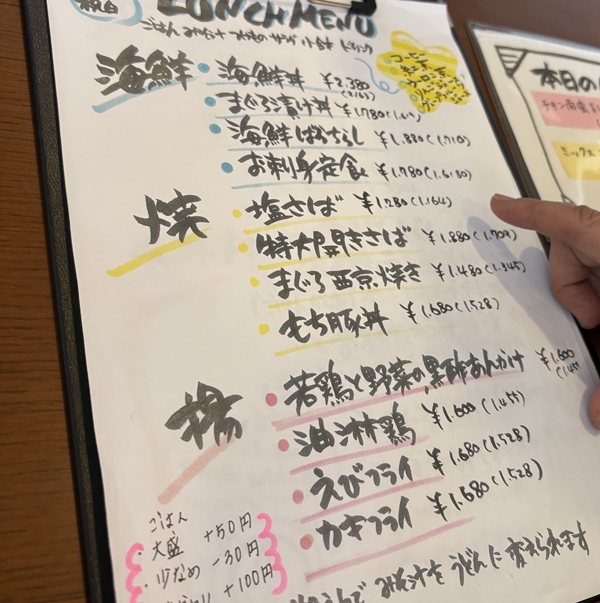 LUNCH MENU
海鮮
・海鮮丼 ¥2.380
・まぐろ漬け丼 ¥1.780(1.619)
・海鮮ばらちらし ¥1.880(1.710)
・お刺身定食 ¥1.780
焼
・塩さば ¥1.280(1.164)
・特大開きさば ¥1.880(1.709)
・まぐろ西京焼き ¥1.480(1.345)
・もち豚丼 ¥1.680(1.528)
揚
・若鶏と野菜の黒酢あんかけ ¥1.600
・油淋鶏 ¥1.600(1.455)
・えびフライ ¥1.680(1.528)
・カキフライ ¥1.680(1.528)
ごはん
・大盛 +50円
・少なめ -30円
+100円
みそ汁をうどんに変えられます
本日の
チキン南蛮
ミックス